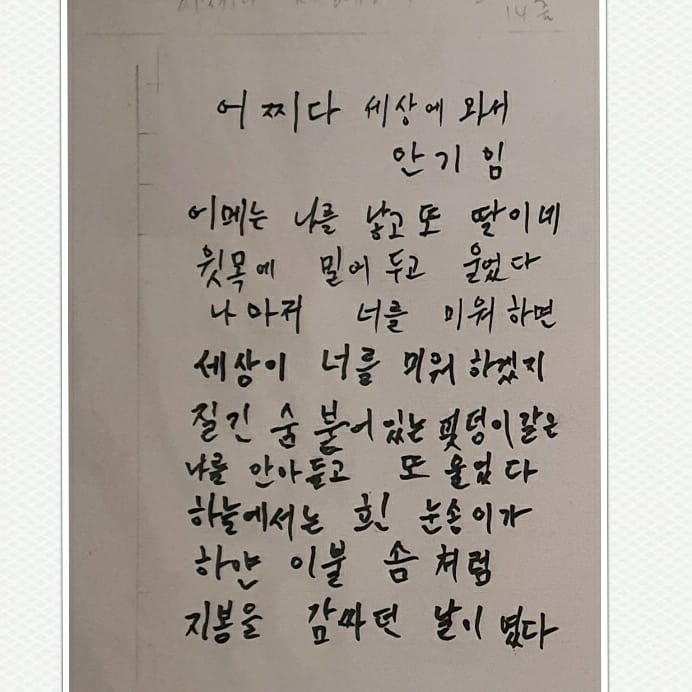 14줄
어찌다 세상에 와서
안기임
어메는 나를 낳고 또 딸이네
윗목에 밀어 두고 울었다
나마저 너를 미워 하면
세상이 너를 미워 하겠지
질긴 숨 붙어 있는 핏덩이 같은
나를 안아 들고 또 울었다
하늘에서는 흰 눈송이가
하얀 이불 솜 처럼
지붕을 감싸던 날이 였다